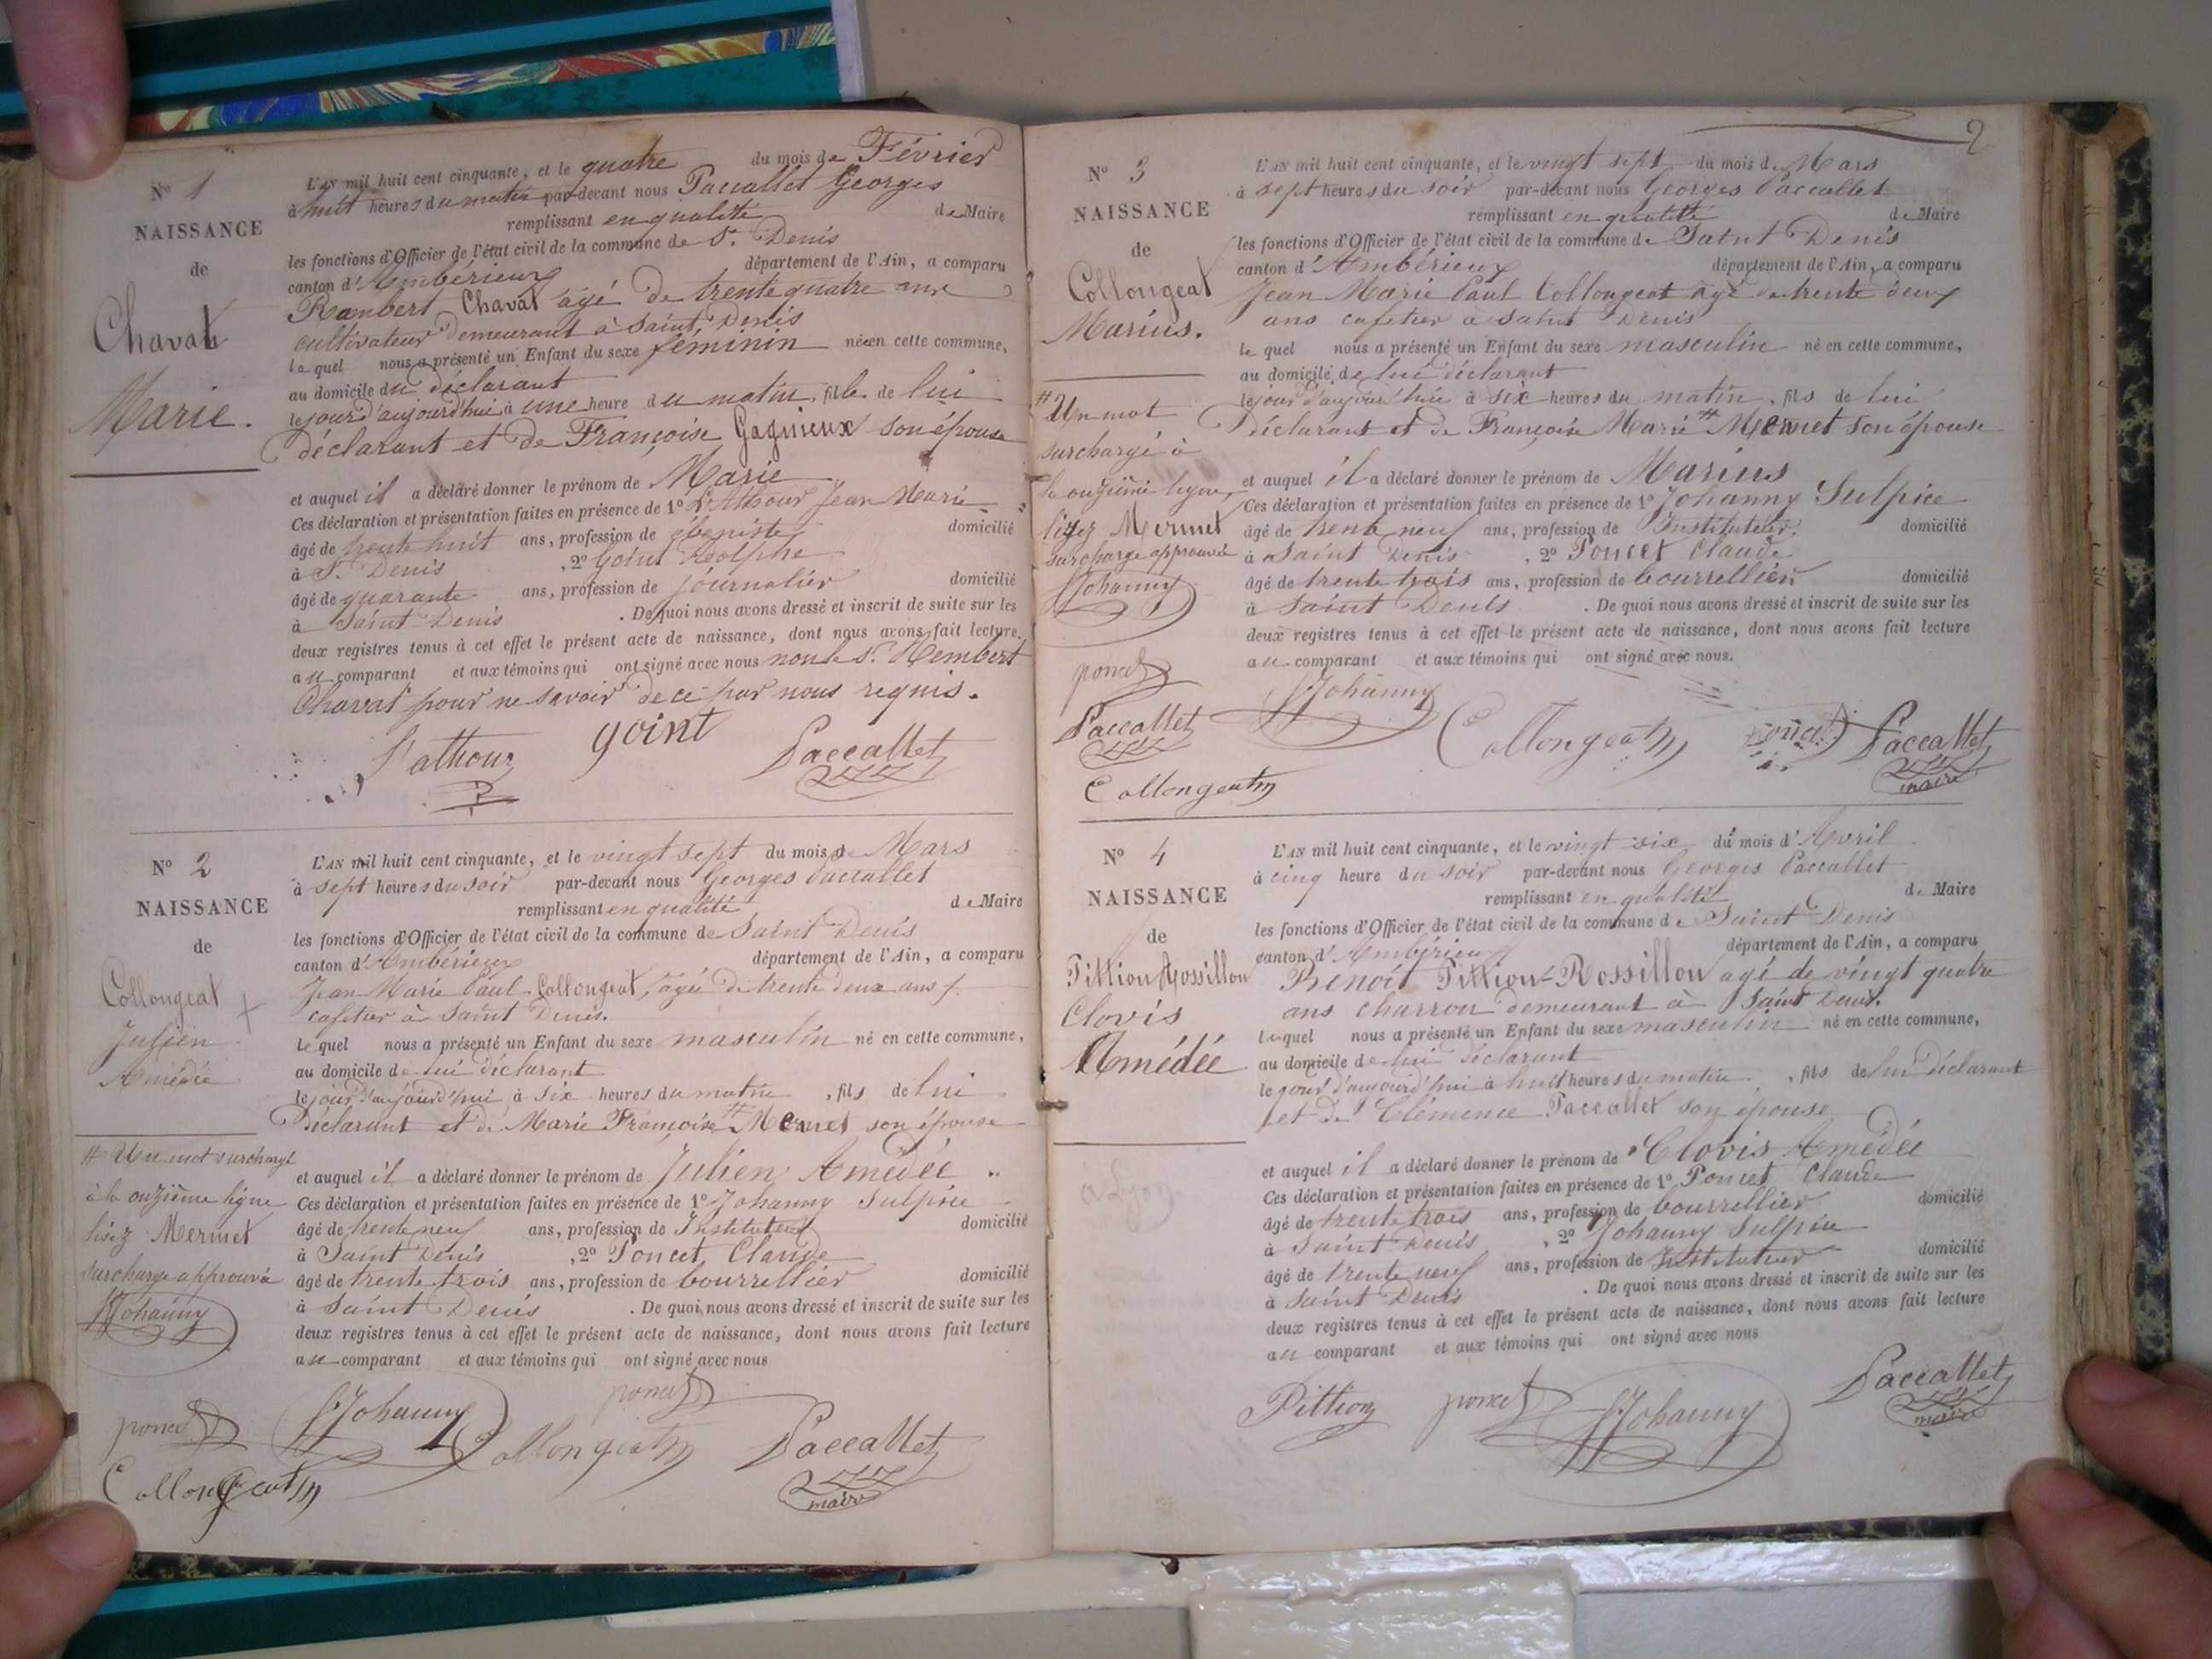 N° 1
NAISSANCE
de
Chavat
Marie.
L'AN mil huit cent cinquante, et le quatre du mois de Février
à huit heures du matin par-devant nous Paccallet Georges
remplissant en qualité de Maire
les fonctions d'Officier de l'état civil de la commune de St. Denis
canton d'Ambérieux département de l'Ain, a comparu
Rambert Chavat âgé de trente quatre ans
cultivateur demeurant à Saint Denis
le quel nous a présenté un Enfant du sexe féminin né en cette commune,
au domicile du déclarant
le jour d'aujourd'hui à une heure du matin, fille de lui
déclarant et de Françoise Gagnieux son épouse
et auquel il a déclaré donner le prénom de Marie
Ces déclaration et présentation faites en présence de 1° Jean Marie
âgé de trente huit ans, profession de ébeniste domicilié
à St. Denis , 2° Goint Adolphe
âgé de quarante ans, profession de journalier domicilié
à Saint Denis . De quoi nous avons dressé et inscrit de suite sur les
deux registres tenus à cet effet le présent acte de naissance, dont nous avons fait lecture
au comparant et aux témoins qui ont signé avec nous non le Sr. Rembert
Chavat pour ne savoir de ce par nous requis.
goint Paccallet
N° 2
NAISSANCE
de
Collongeat
Julien
Amédée
L'AN mil huit cent cinquante, et le vingt sept du mois de Mars
à sept heures du soir par-devant nous Georges Paccallet
remplissant en qualité de Maire
les fonctions d'Officier de l'état civil de la commune de Saint Denis
canton d'Ambérieux département de l'Ain, a comparu
Jean Marie Paul Collongeat, âgée de trente deux ans
cafetier à Saint Denis.
le quel nous a présenté un Enfant du sexe masculin né en cette commune,
au domicile de lui déclarant
le jour d'aujourd'hui à six heures du matin , fils de lui
Déclarant et de Marie Françoise # Mermet son épouse
et auquel il a déclaré donner le prénom de Julien Amédée
Ces déclaration et présentation faites en présence de 1° Johanny Sulpice
âgé de trente neuf ans, profession de Instituteur domicilié
à Saint Denis , 2° Poncet Claude
âgé de trente trois ans, profession de bourrellier domicilié
à Saint Denis . De quoi nous avons dressé et inscrit de suite sur les
deux registres tenus à cet effet le présent acte de naissance, dont nous avons fait lecture
au comparant et aux témoins qui ont signé avec nous
# Un mot surchargé
à la onzième ligne
lisez Mermet
surcharge approuvée
Johanny
poncet Johanny poncet
Collongeat Collongeat Paccallet
maire
2
N° 3
NAISSANCE
de
Collongeat
Marius.
L'AN mil huit cent cinquante, et le vingt sept du mois de Mars
à sept heures du soir par-devant nous Georges Paccallet
remplissant en qualité de Maire
les fonctions d'Officier de l'état civil de la commune de Saint Denis
canton d'Ambérieux département de l'Ain, a comparu
Jean Marie Paul Collongeat âgé de trente deux
ans cafetier à Saint Denis
le quel nous a présenté un Enfant du sexe masculin né en cette commune,
au domicile de lui déclarant
le jour d'aujourd'hui à six heures du matin, fils de lui
déclarant et de Françoise Marie # Mermet son épouse
et auquel il a déclaré donner le prénom de Marius
Ces déclaration et présentation faites en présence de 1° Johanny Sulpice
âgé de trente neuf ans, profession de Instituteur domicilié
à Saint Denis , 2° Poncet Claude
âgé de trente trois ans, profession de bourrellier domicilié
à Saint Denis . De quoi nous avons dressé et inscrit de suite sur les
deux registres tenus à cet effet le présent acte de naissance, dont nous avons fait lecture
au comparant et aux témoins qui ont signé avec nous.
# Un mot
surchargé à
la onzième ligne,
lisez Mermet
surcharge approuvée
Johanny
poncet
Paccallet
Collongeat
Johanny Collongeat poncet Paccallet
maire
N° 4
NAISSANCE
de
Pittion Rossillon
Clovis
Amédée
L'AN mil huit cent cinquante, et le vingt six du mois d'Avril
à cinq heure du soir par-devant nous Georges Paccallet
remplissant en qualité de Maire
les fonctions d'Officier de l'état civil de la commune de Saint Denis
canton d'Ambérieux département de l'Ain, a comparu
Benoit Pittion-Rossillon agé de vingt quatre
ans charron demeurant à Saint Denis.
lequel nous a présenté un Enfant du sexe masculin né en cette commune,
au domicile de lui déclarant
le jour d'aujourd'hui à huit heures du matin , fils de lui déclarant
et de Clémence Paccallet son épouse
et auquel il a déclaré donner le prénom de Clovis Amédée
Ces déclaration et présentation faites en présence de 1° Poncet Claude
âgé de trente trois ans, profession de bourrellier domicilié
à Saint Denis , 2° Johanny Sulpice
âgé de trente neuf ans, profession de Instituteur domicilié
à Saint Denis . De quoi nous avons dressé et inscrit de suite sur les
deux registres tenus à cet effet le présent acte de naissance, dont nous avons fait lecture
au comparant et aux témoins qui ont signé avec nous
Pittion poncet Johanny Paccallet
maire